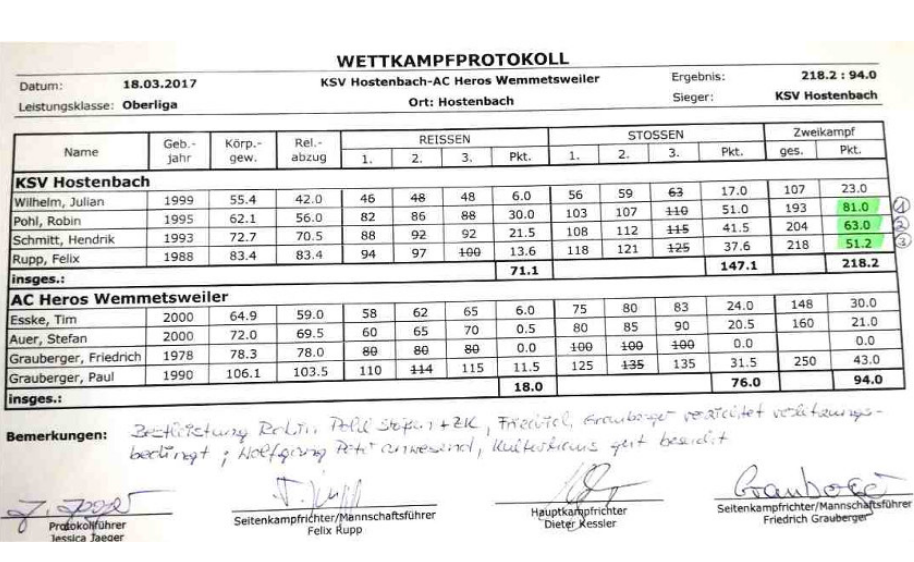 WETTKAMPFPROTOKOLL
Datum: 18.03.2017 KSV Hostenbach-AC Heros Wemmetsweiler Ergebnis: 218.2 : 94.0
Leistungsklasse: Oberliga Ort: Hostenbach Sieger: KSV Hostenbach
Name Geb.-jahr Körp.-gew. Rel.-abzug REISSEN STOSSEN Zweikampf
1. 2. 3. Pkt. 1. 2. 3. Pkt. ges. Pkt.
KSV Hostenbach
Wilhelm, Julian 1999 55.4 42.0 46 48 48 6.0 56 59 63 17.0 107 23.0
Pohl, Robin 1995 62.1 56.0 82 86 88 30.0 103 107 110 51.0 193 81.0 1
Schmitt, Hendrik 1993 72.7 70.5 88 92 92 21.5 108 112 115 41.5 204 63.0 2
Rupp, Felix 1988 83.4 83.4 94 97 100 13.6 118 121 125 37.6 218 51.2 3
insges.: 71.1 147.1 218.2
AC Heros Wemmetsweiler
Esske, Tim 2000 64.9 59.0 58 62 65 6.0 75 80 83 24.0 148 30.0
Auer, Stefan 2000 72.0 69.5 60 65 70 0.5 80 85 90 20.5 160 21.0
Grauberger, Friedrich 1978 78.3 78.0 80 80 80 0.0 100 100 100 0.0 0.0
Grauberger, Paul 1990 106.1 103.5 110 114 115 11.5 125 135 135 31.5 250 43.0
insges.: 18.0 76.0 94.0
Bemerkungen: Bestleistung Robin Pohl Stoßen + ZK, Friedrich Grauberger verzichtet verletzungs-
bedingt; Wolfgang Peter anwesend, gut besucht
Protokollführer
Jessica Jaeger
Seitenkampfrichter/Mannschaftsführer
Felix Rupp
Hauptkampfrichter
Dieter Kessler
Grauberger
Seitenkampfrichter/Mannschaftsführer
Friedrich Grauberger